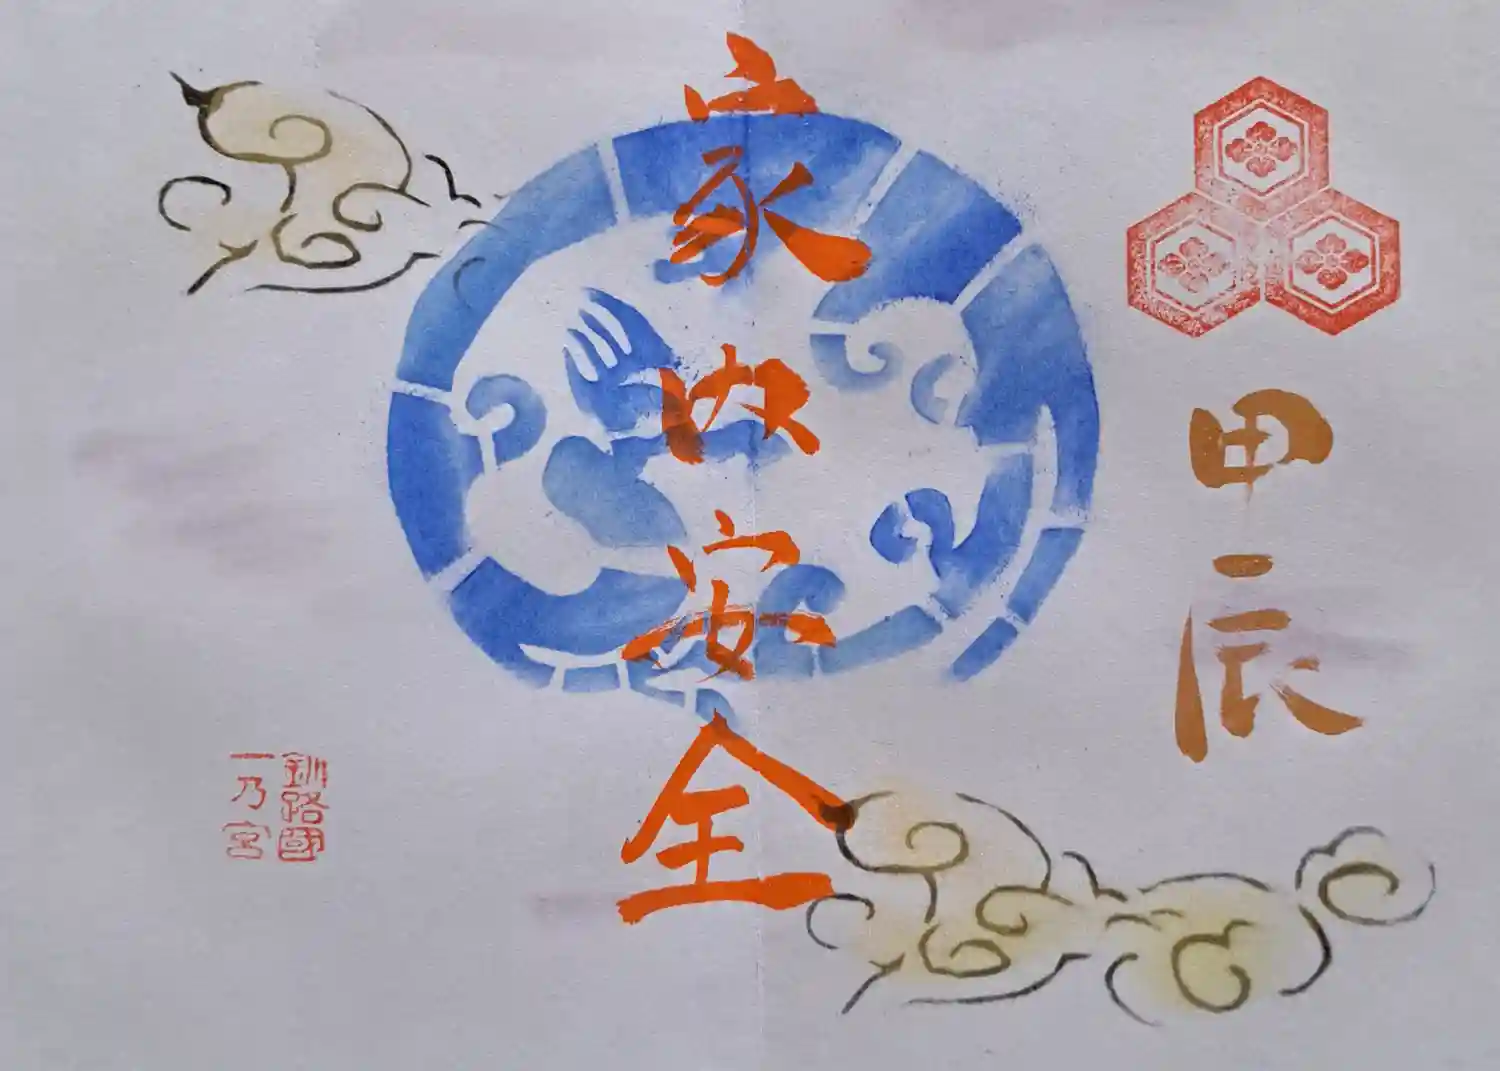 甲辰
家内安全
釧路國
一乃宮